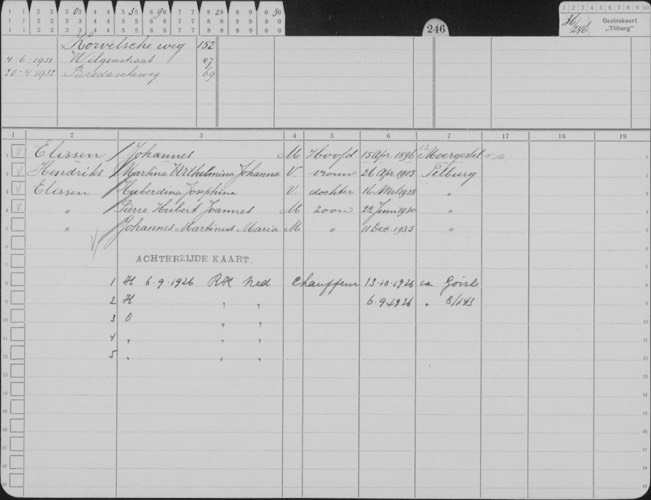 246
36/246
Gezinskaart
"Tilburg"
Korvelsche weg 152
4-6-1931 Wilgenstraat 47
20-4-1932 Bredascheweg 69
1 2 3 4 5 6 7 17 18 19
Elissen Johannes M Hoofd 15 Apr. 1896 Moergestel
Hendriks Martina Wilhelmina Johanna V. vrouw 26 Apr. 1903 Tilburg
Elissen Huberdina Josephina V dochter 16 Mei 1928 "
" Pierre Hubert Joannes M zoon 22 Juni 1930 "
" Johannes Martinus Maria M " 11 Dec. 1935 "
ACHTERZIJDE KAART.
1 H 6-9-1926 RK Ned Chauffeur 13-10-1926 va Goirle
2 H " " 6-9-1926 " 8/143
3 O " "
4 " " "
5 " " "